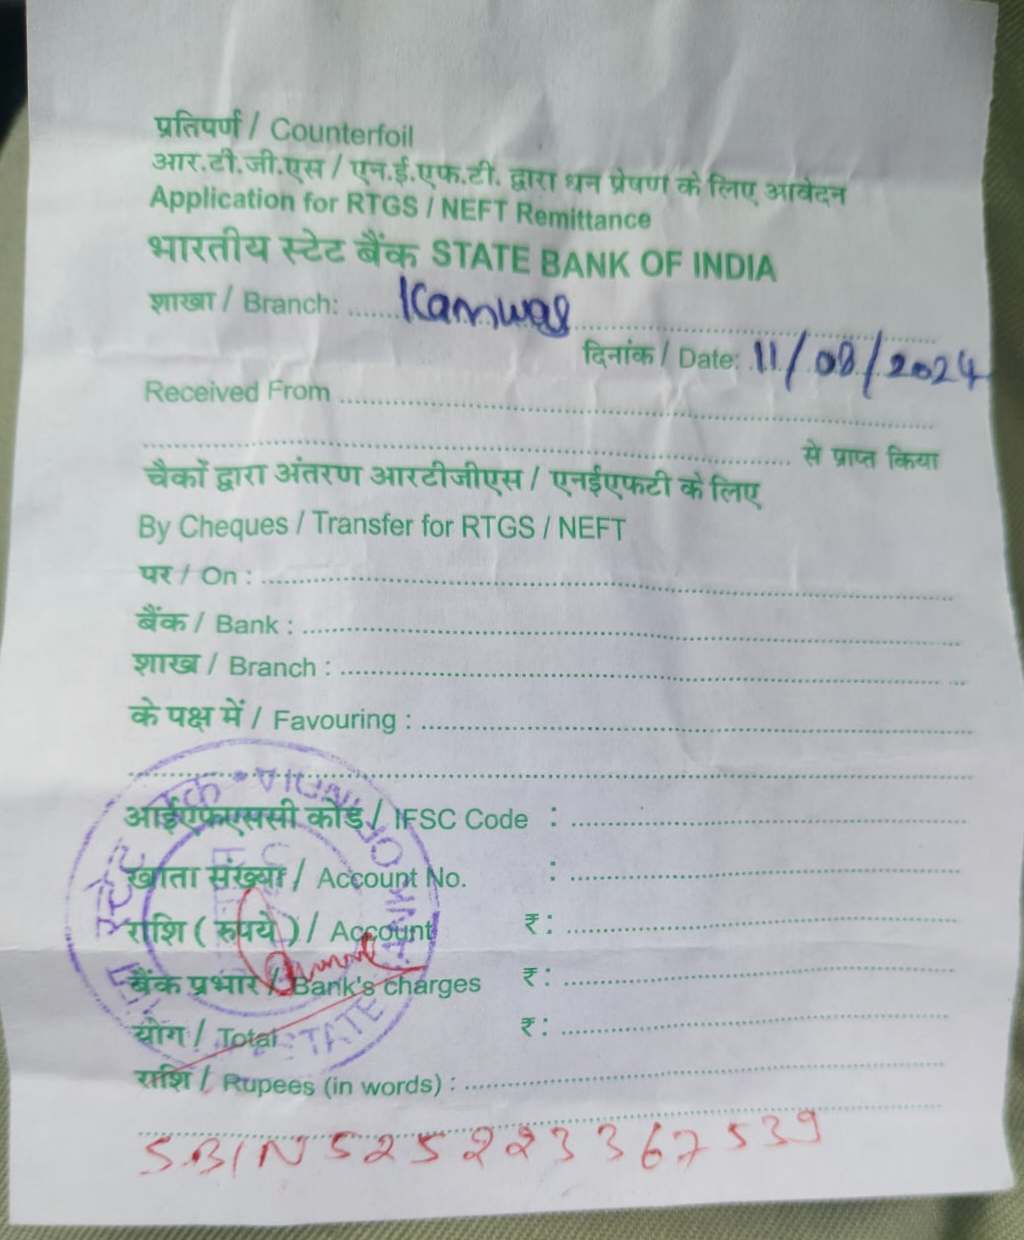 प्रतिपर्ण / Counterfoil
आर.टी.जी.एस / एन.ई.एफ.टी. द्वारा धन प्रेषण के लिए आवेदन
Application for RTGS / NEFT Remittance
भारतीय स्टेट बैंक STATE BANK OF INDIA
शाखा / Branch:
दिनांक / Date: 11/08/2024
Received From
से प्राप्त किया
चैकों द्वारा अंतरण आरटीजीएस / एनईएफटी के लिए
By Cheques / Transfer for RTGS / NEFT
पर / On :
बैंक / Bank :
शाख / Branch :
के पक्ष में / Favouring :
आईएफएससी कोड / IFSC Code :
खाता संख्या / Account No. :
राशि ( रूपये ) / Account ₹ :
बैंक प्रभार / Bank's charges ₹ :
योग / Total ₹ :
राशि / Rupees (in words) :
SBIN525223367539
STATE BANK OF INDIA